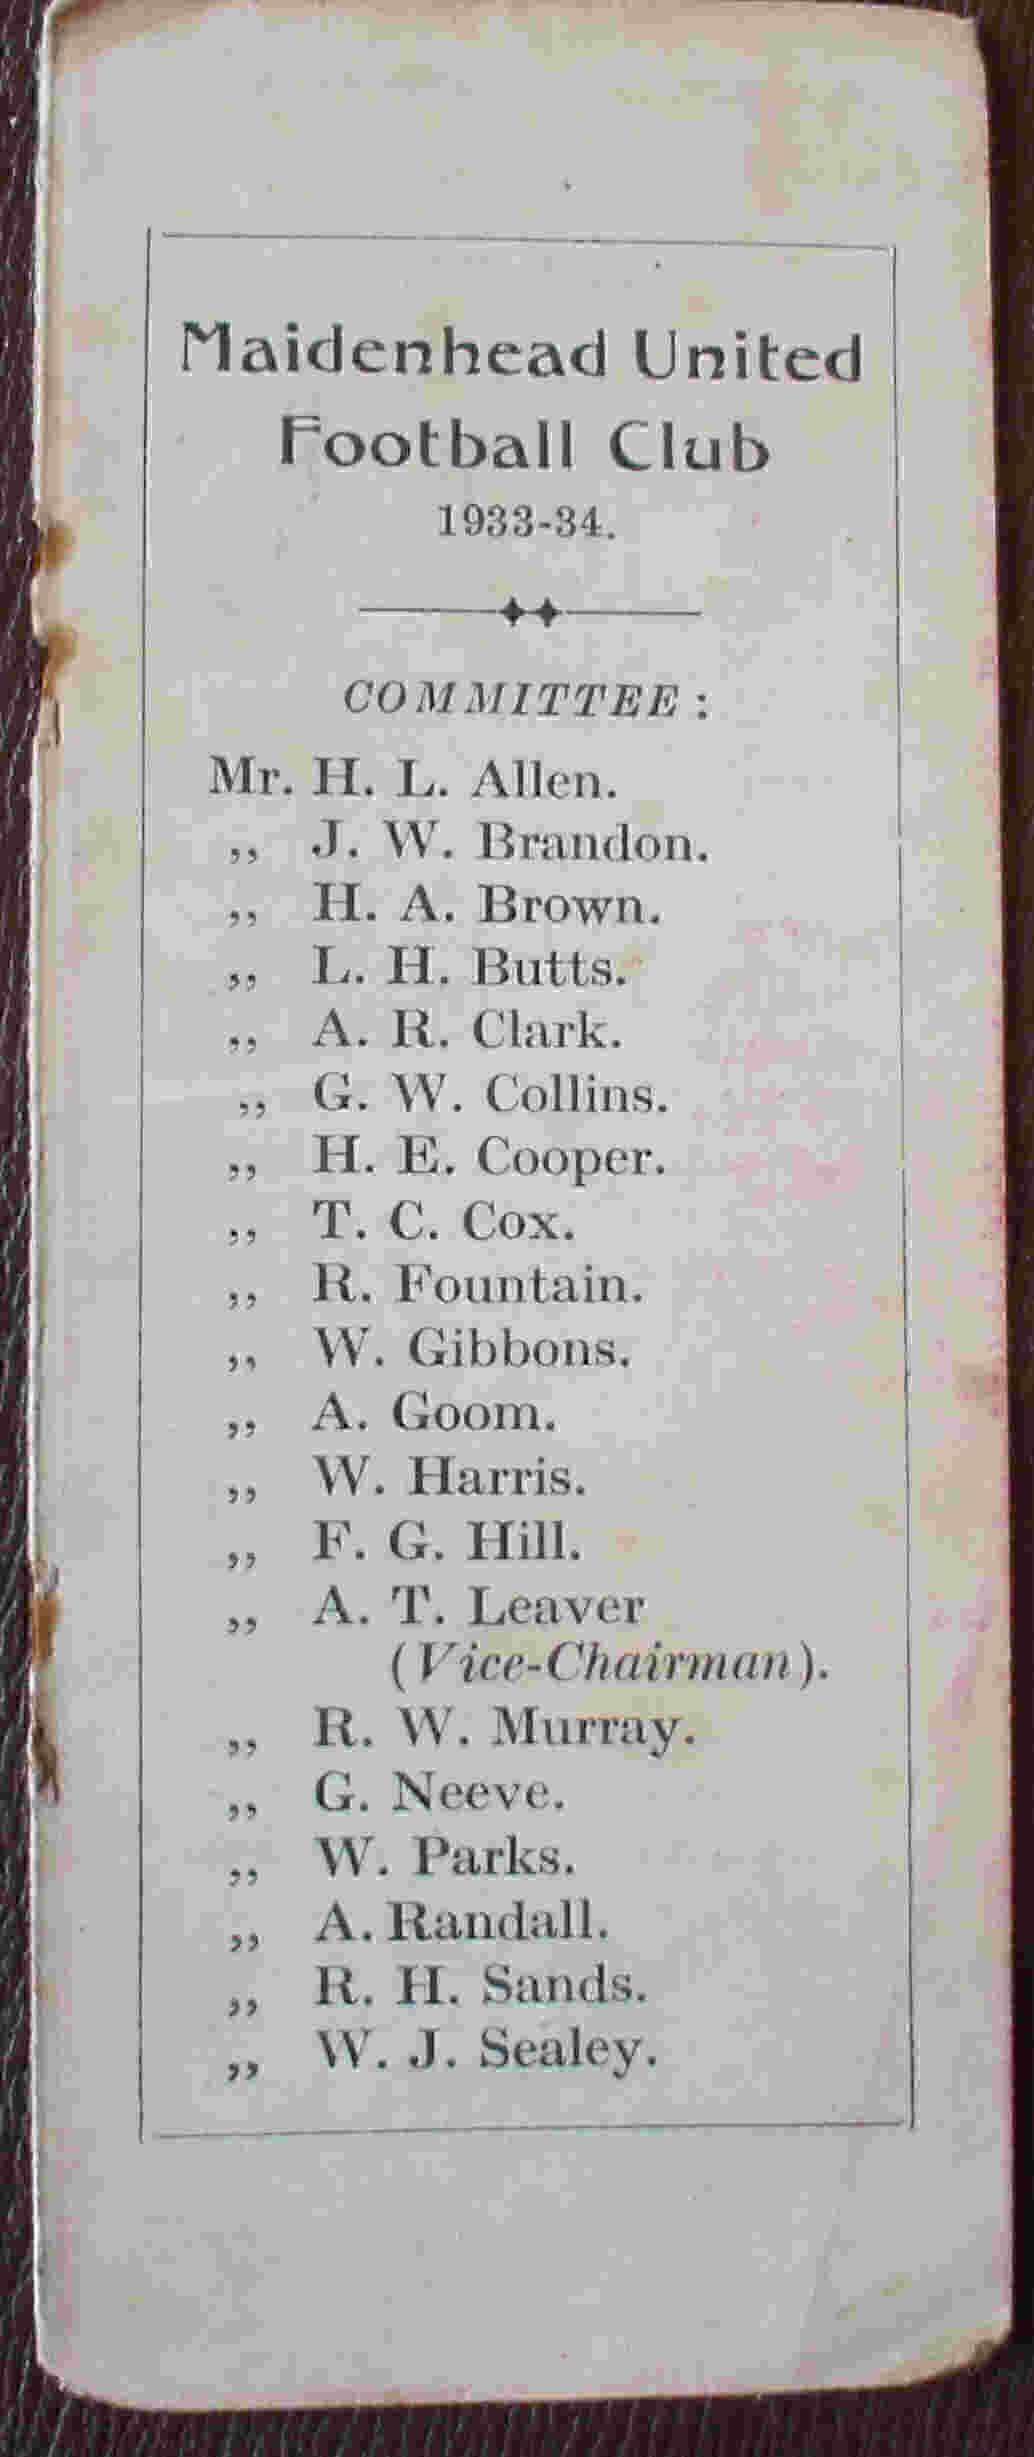 Maidenhead United
Football Club
1933-34.
COMMITTEE :
Mr. H. L. Allen.
,, J. W. Brandon.
,, H. A. Brown.
,, L. H. Butts.
,, A. R. Clark.
,, G. W. Collins.
,, H. E. Cooper.
,, T. C. Cox.
,, R. Fountain.
,, W. Gibbons.
,, A. Goom.
,, W. Harris.
,, F. G. Hill.
,, A. T. Leaver
(Vice-Chairman).
,, R. W. Murray.
,, G. Neeve.
,, W. Parks.
,, A. Randall.
,, R. H. Sands.
,, W. J. Sealey.